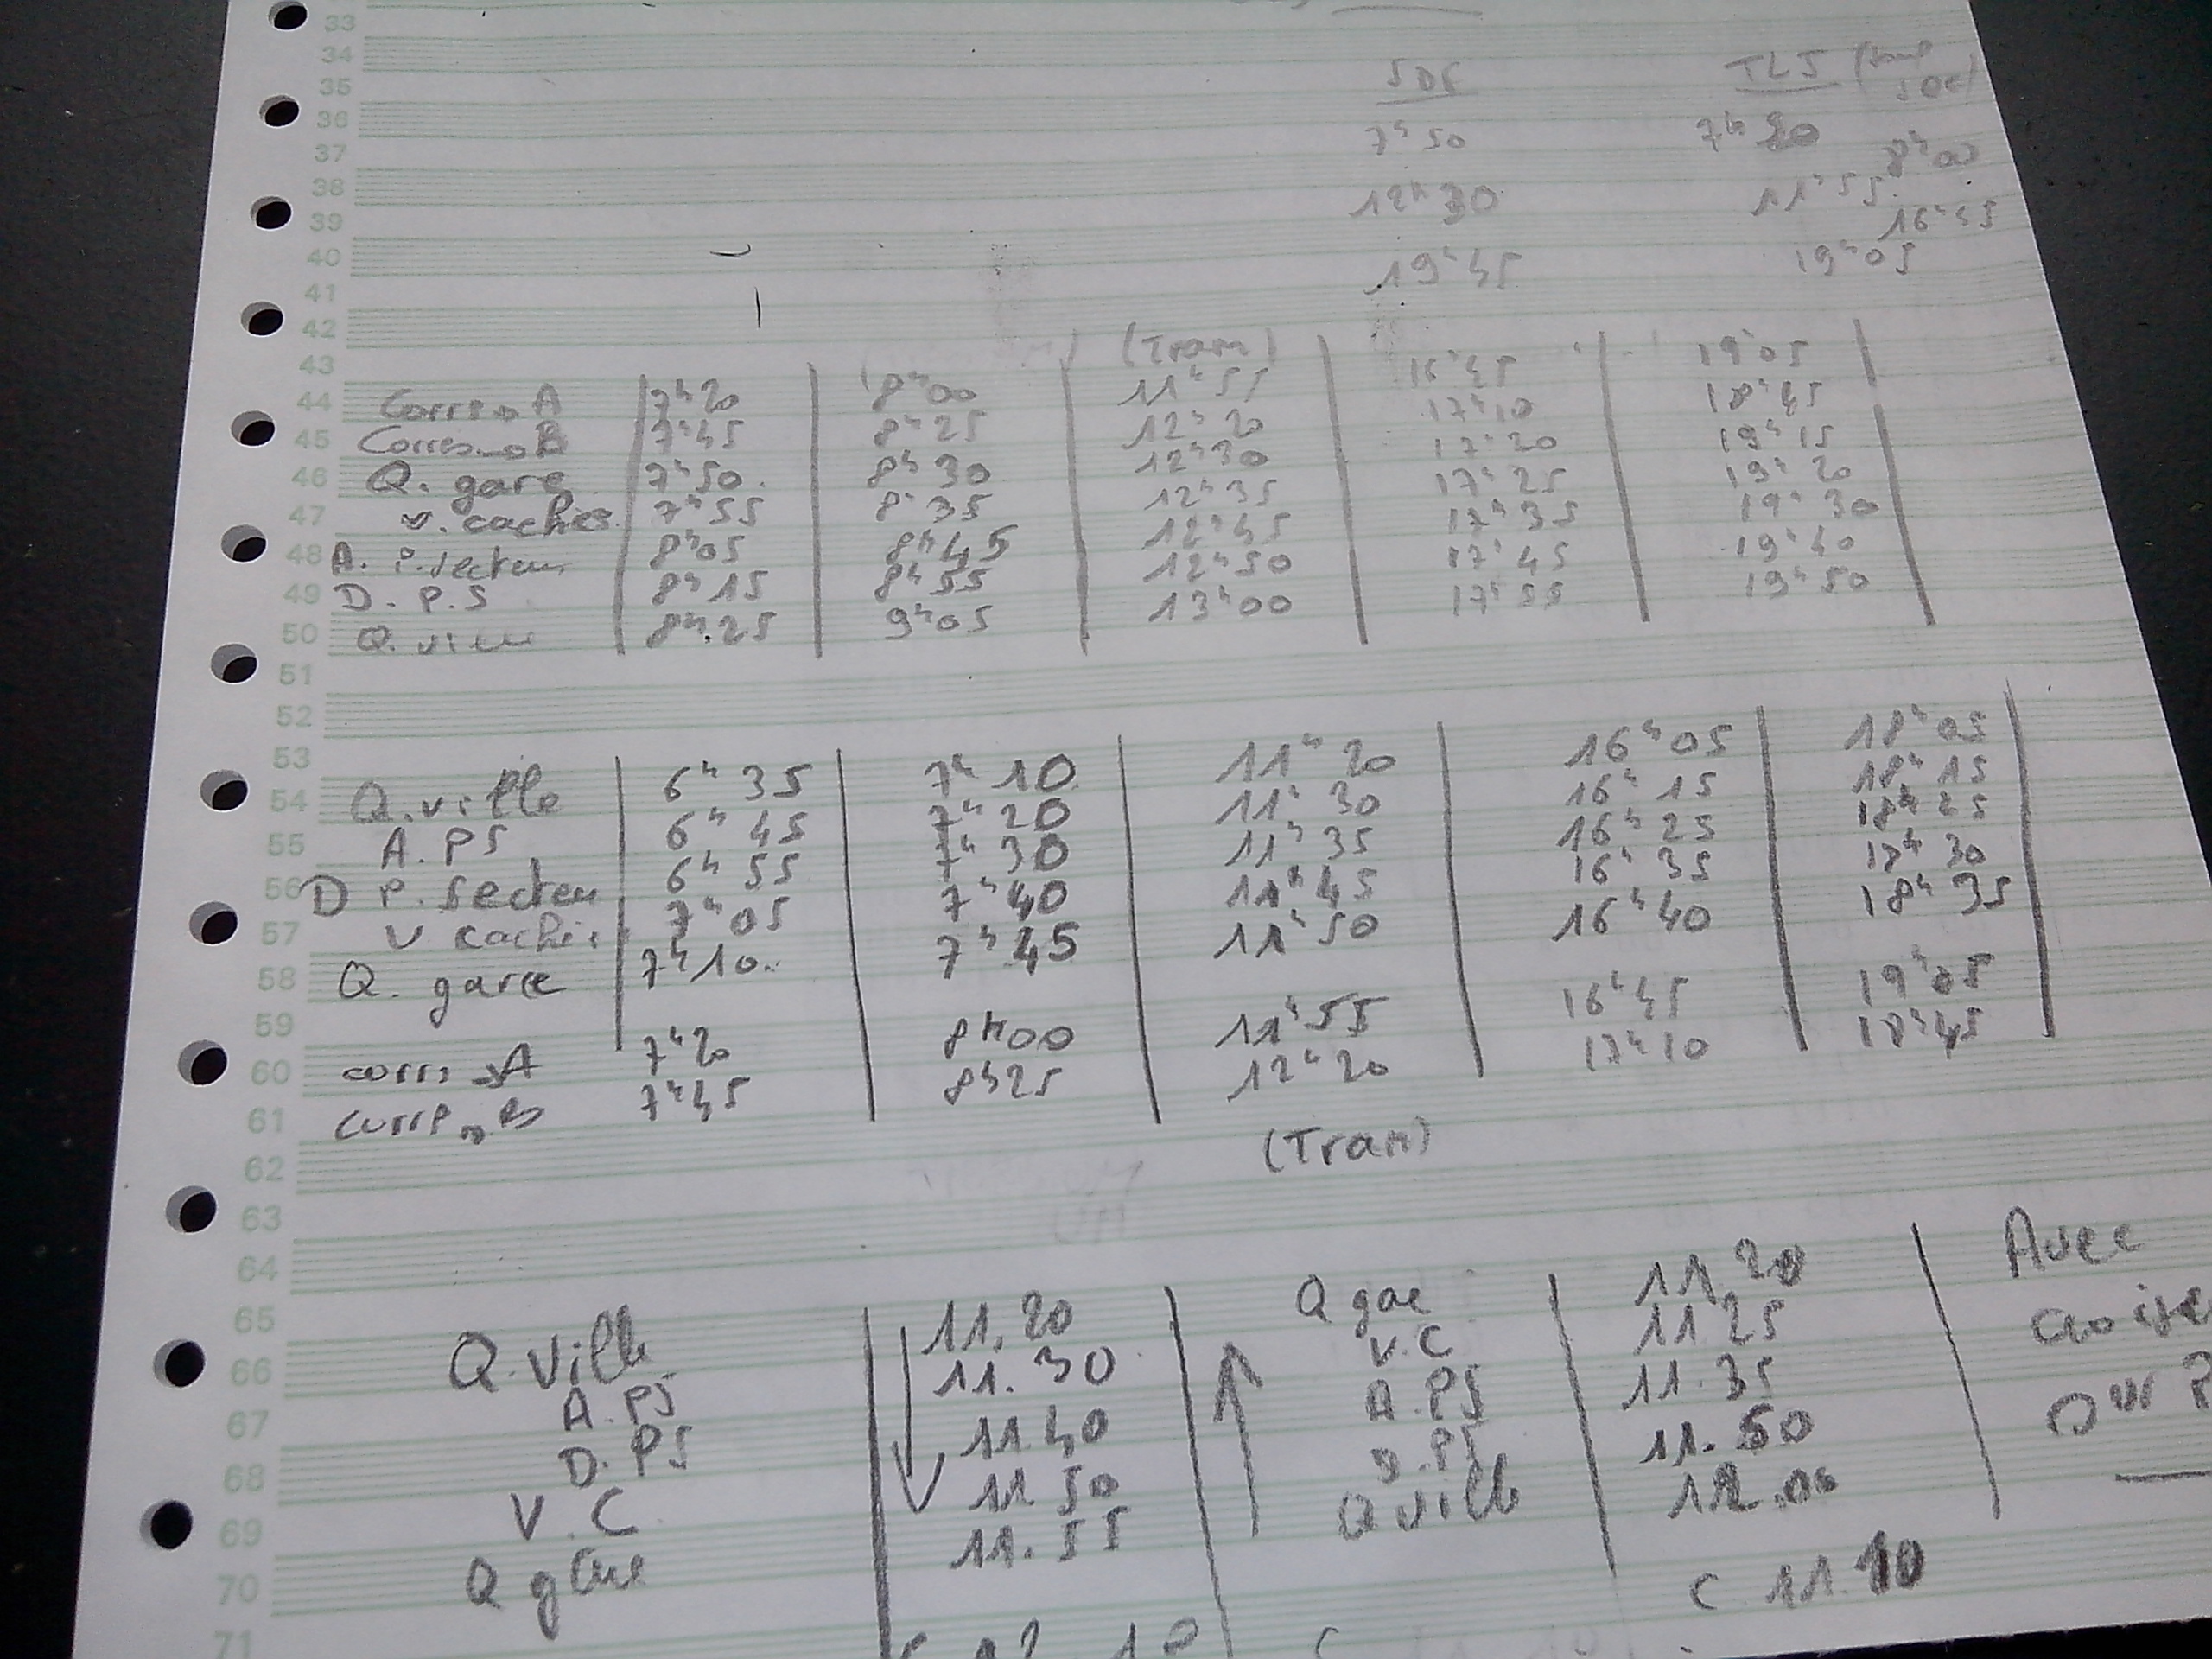 33
34
35 SDS TLJ
36 7h50 7h20 8h00
37
38 12h30 11h55
39 16h45
40 19h45 19h05
41
42
43 (Tram)
44 Corres→A 7h20 8h00 11h55 16h45 19h05
45 Corres→B 7h45 8h25 12h20 17h10 18h45
46 Q. gare 7h50. 8h30 12h30 17h20 19h15
47 v. caches 7h55 8h35 12h35 17h25 19h20
48 A. P. secteur 8h05 8h45 12h45 17h35 19h30
49 D. P.S 8h15 8h55 12h50 17h45 19h40
50 Q. ville 8h.25 9h05 13h00 17h55 19h50
51
52
53
54 Q. ville 6h35 7h10 11h20 16h05 18h05
55 A. PS 6h45 7h20 11h30 16h15 18h15
56 D P. Secteur 6h55 7h30 11h35 16h25 18h25
57 V caches 7h05 7h40 11h45 16h35 18h30
58 Q. gare 7h10. 7h45 11h50 16h40 18h35
59
60 corr→A 7h20 8h00 11h55 16h45 19h05
61 corr→B 7h45 8h25 12h20 17h10 18h45
62 (Tram)
63
64
65 Q. Ville 11.20 Q gare 11.20 Avec
66 A. PS 11.30 V.C 11 25
67 D. PS 11.40 A. PS 11.35
68 V. C 11 50 D. PS 11.50
69 Q gare 11.55 Q ville 12.00
70 C 11.10
71